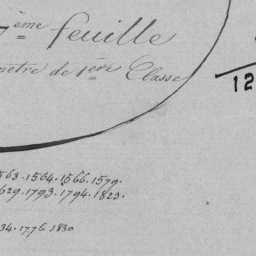 7ème feuille
mètre de 1ère Classe
12
1563.1564.1566.1579.
1629.1793.1794.1823.
34.1776.1830